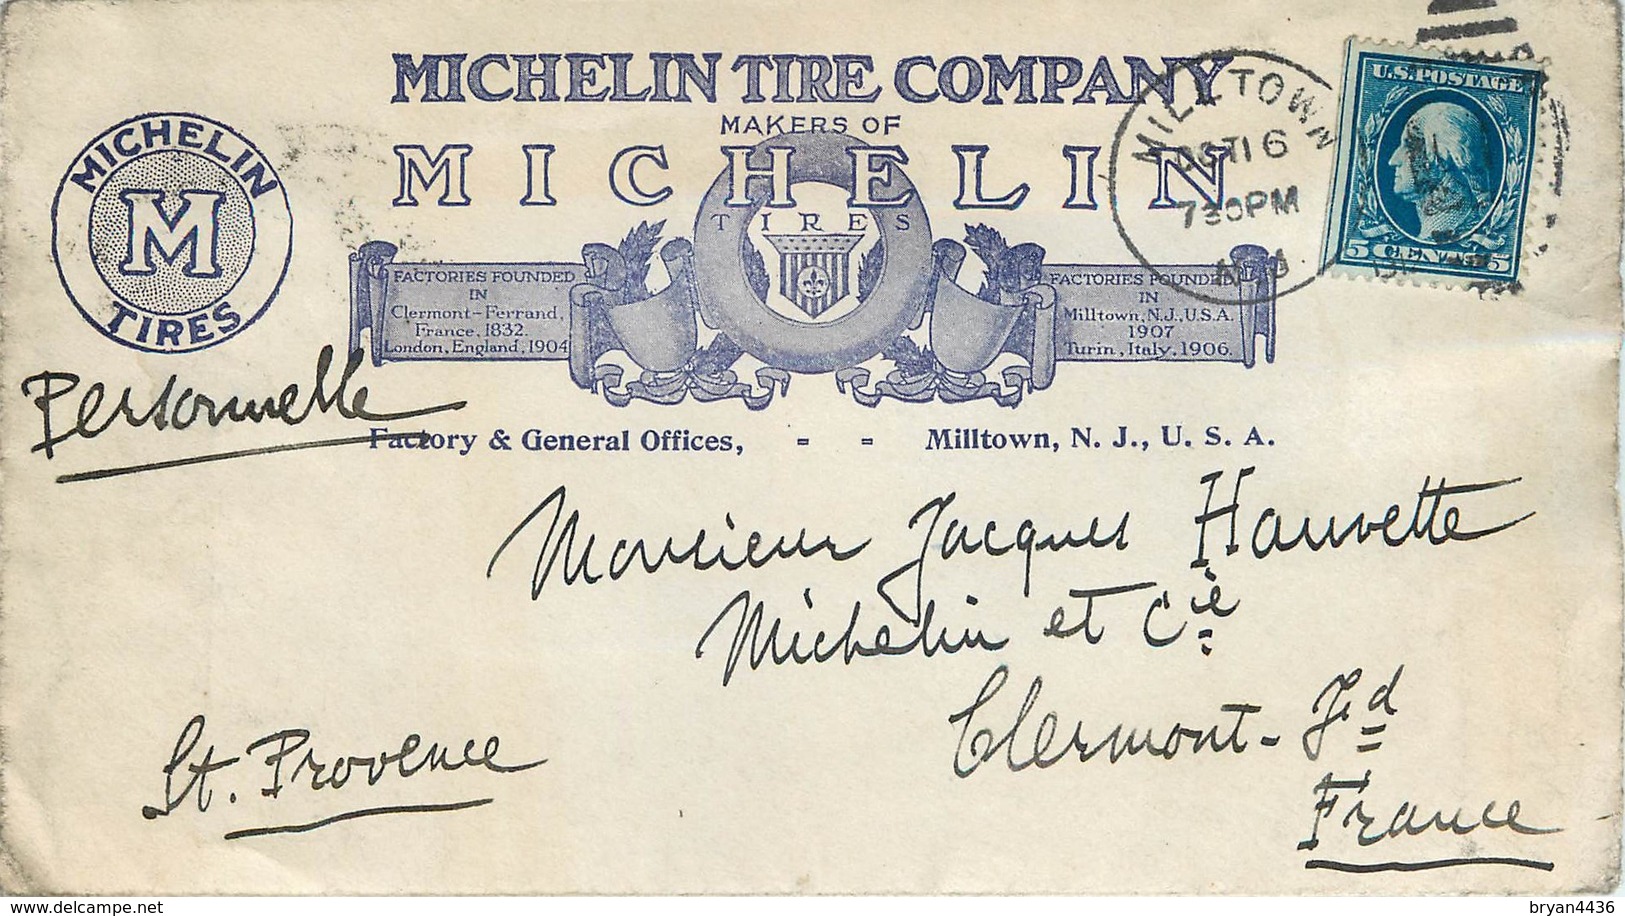 MICHELIN TIRE COMPANY
MAKERS OF
MICHELIN
TIRES
MICHELIN
M
TIRES
FACTORIES FOUNDED
IN
Clermont-Ferrand,
France, 1832.
London, England, 1904
FACTORIES FOUNDED
IN
Milltown, N.J., U.S.A.
1907
Turin, Italy, 1906.
Factory & General Offices, - - Milltown, N. J., U. S. A.
MILLTOWN
OCT 16
730PM
N.J.
U.S. POSTAGE
5 CENTS 5
Personnelle
Monsieur Jacques Hauvette
Michelin et Cie
Clermont-Fd
France
St. Provence
delcampe.net
bryan4436